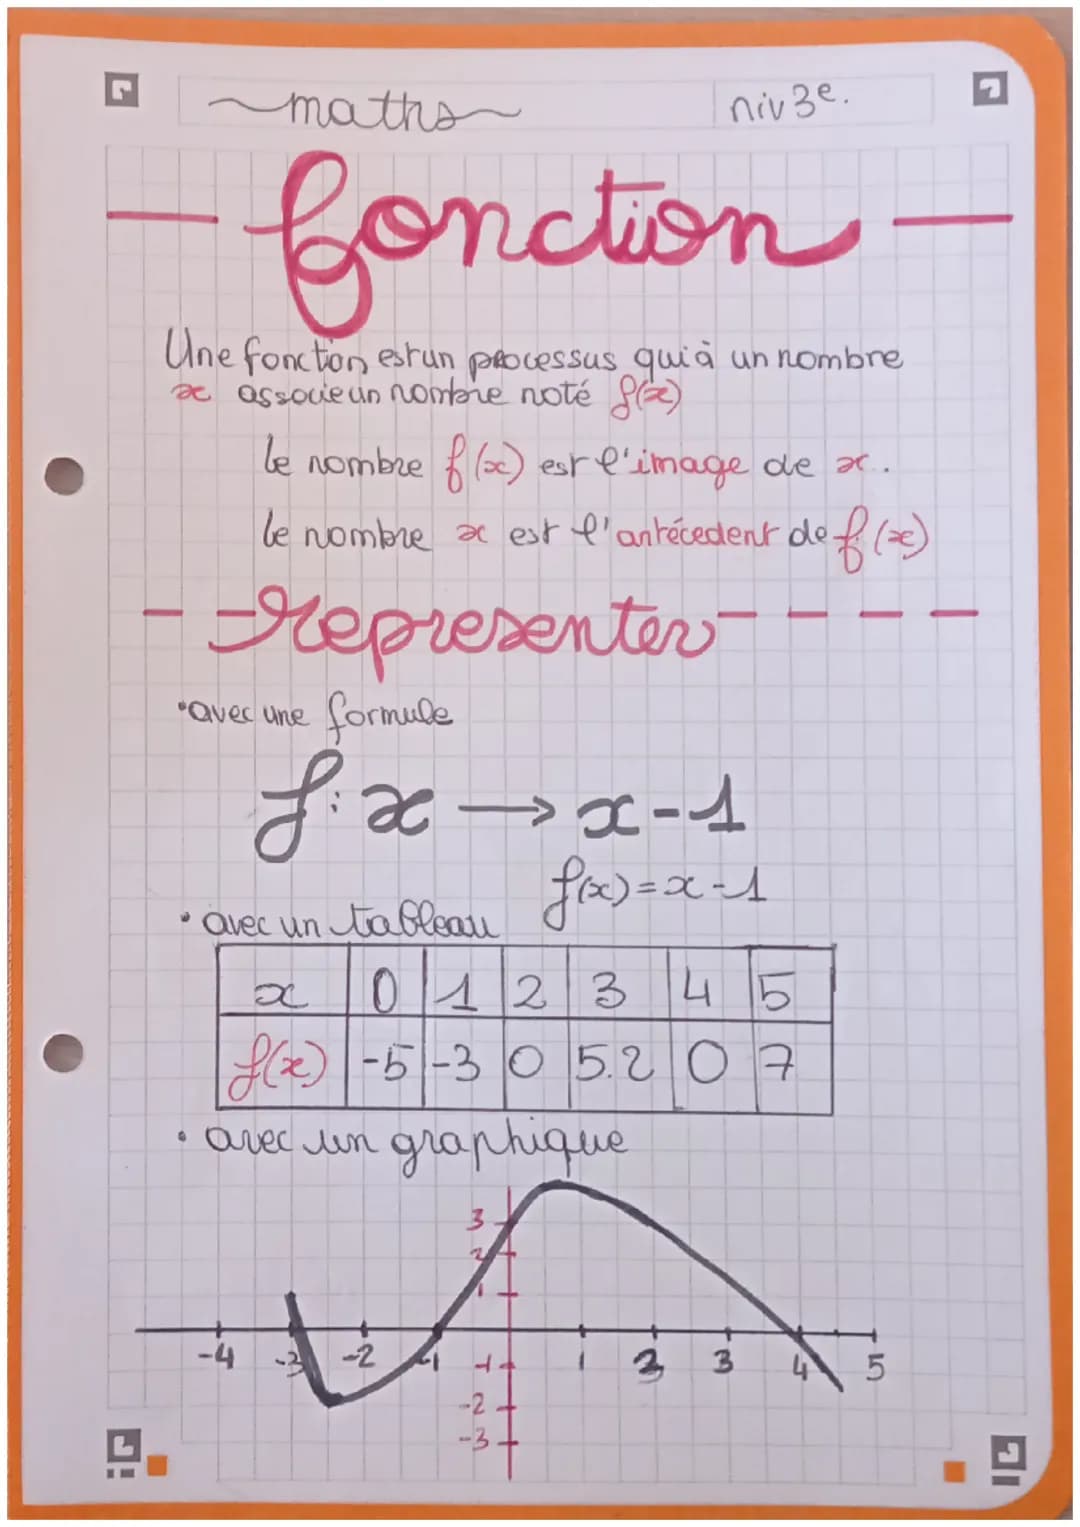 maths
niv 3e.
fonction
Une fonction est un processus qui à un nombre
x associe un nombre noté f(x)
le nombre f(x) est l'image de x.
le nombre x est l'antécedent de f(x)
representer
• avec une formule
f: x → x-1
f(x)=x-1
• avec un tableau
x 0 1 2 3 4 5
f(x) -5 -3 0 5.2 0 7
• avec un graphique
3
2
1
-4 -3 -2 -1 -1 1 2 3 4 5
-2
-3